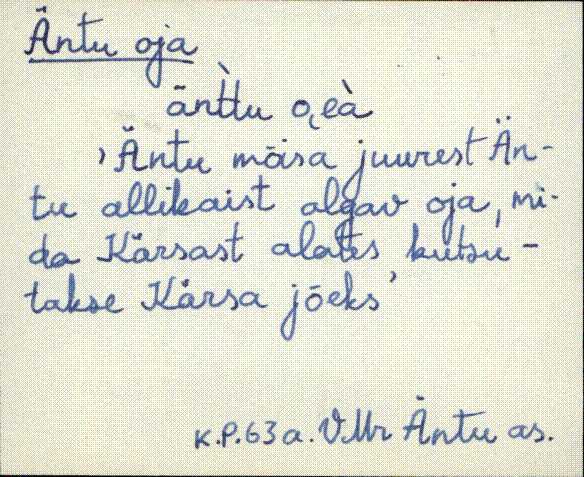 Äntu oja
änt̀tu o̭eà
‚Äntu mõisa juurest Än-
tu allikaist algav oja, mi-
da Kärsast alates kutsu-
takse Kärsa jõeks’
K.P. 63 a. VMr Äntu as.